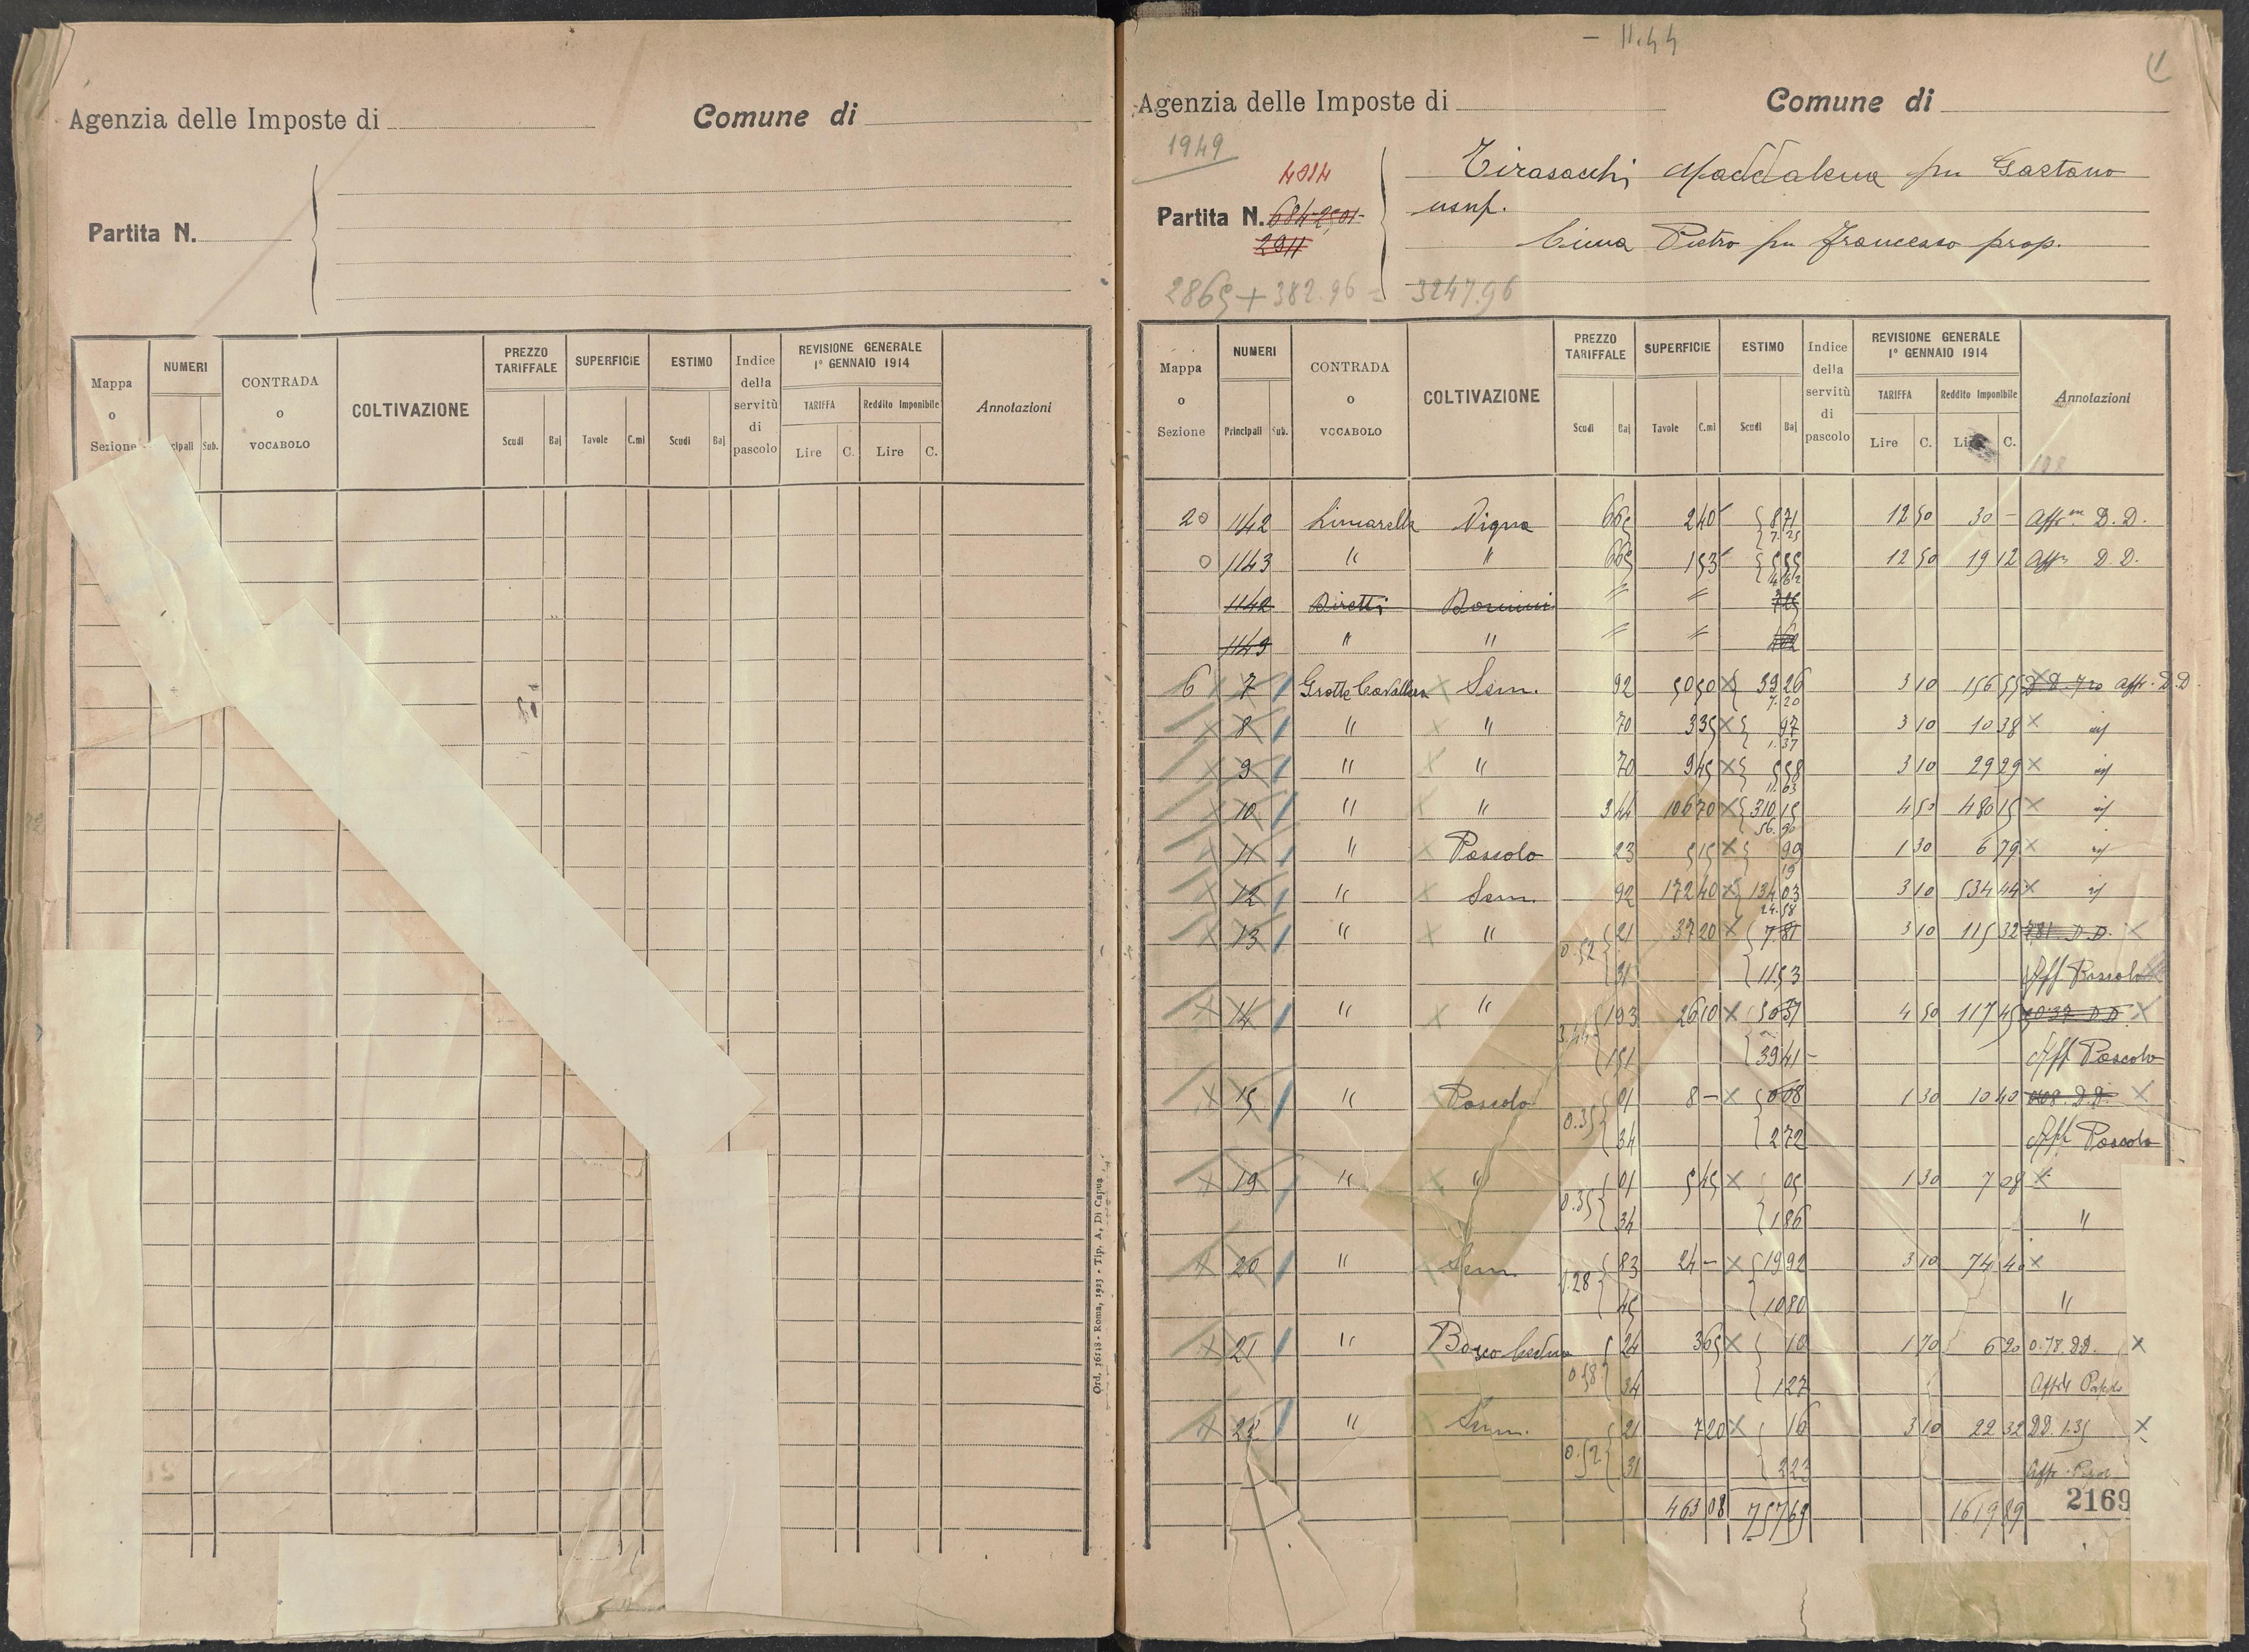 Agenzia delle Imposte di
Comune di
Partita N.
Mappa o Sezione
NUMERI
Sub.
CONTRADA o VOCABOLO
COLTIVAZIONE
PREZZO TARIFFALE
Scudi Baj
SUPERFICIE
Tavole C.mi
ESTIMO
Scudi Baj
Indice della servitù di pascolo
REVISIONE GENERALE 1° GENNAIO 1914
TARIFFA
Lire C.
Reddito Imponibile
Lire C.
Annotazioni
Ord. 16113 - Roma, 1923 - Tip. A. Di Capua
- 11.44
Agenzia delle Imposte di
Comune di
1949
4914
Partita N.
2911
Maddalena fu Gaetano
usuf.
Pietro fu Francesco prop.
2865 + 382.96 = 3247.96
Mappa o Sezione
NUMERI
Principali Sub.
CONTRADA o VOCABOLO
COLTIVAZIONE
PREZZO TARIFFALE
Scudi Baj
SUPERFICIE
Tavole C.mi
ESTIMO
Scudi Baj
Indice della servitù di pascolo
REVISIONE GENERALE 1° GENNAIO 1914
TARIFFA
Lire C.
Reddito Imponibile
C.
Annotazioni
20 1142 Vigna 665 240 871 12 50 30 - D.D.
1143 " " 665 153 12 50 19 12 D.D.
1142 Diretti Dominii " "
1143 " "
6 7 Grotte Sem. 92 5050 39 26 3 10 156 55 D.D. 7 20 aff. D.D.
7.20
8 " " 70 335 97 3 10 10 38
1.37
9 " " 70 945 558 3 10 29 29
11.63
10 " " 3 44 106 70 310 15 4 50 480 15
56.90
11 " Pascolo 23 515 99 1 30 6 79
19
12 " Sem. 92 172 40 134 03 3 10 534 44
24.58
13 " " 0.52 21 37 20 7 81 3 10 115 32 781 D.D.
31 11.53 Aff Pascolo
14 " " 3.44 193 26 10 50 37 4 50 117 45 5037 D.D.
151 39 41 Aff Pascolo
15 " Pascolo 0.35 01 8 - 0 08 1 30 10 40 008. D.D.
34 2 72 Aff Pascolo
19 " " 0.35 01 5 45 05 1 30 7 08
34 1 86 "
20 " Sem. 1.28 83 24 - 19 92 3 10 74 40
45 10 80 "
21 " Bosco Ceduo 24 365 10 1 70 6 20 0.78. D.D.
0.58 34 1 27
22 " Sem. 21 7 20 16 3 10 22 32 D.D. 1.35
0.52 31 2 23
463 08 757 69 1619 89 2169